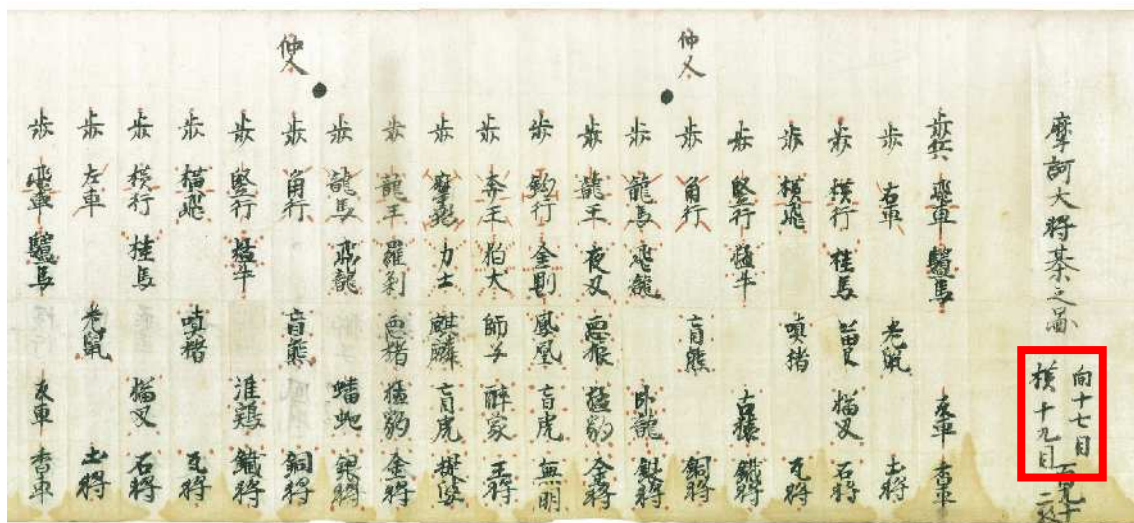 摩訶大将棊之圖
向十七目 百九十
横十九目 二枚
歩兵 飛車 驢馬 反車 香車
歩 右車 老鼠 土将
歩 横行 桂馬 猫叉 石将
歩 横飛 嗔猪 瓦将
歩 竪行 猛牛 古猿 鐵将
仲人
歩 角行 盲熊 銅将
歩 龍馬 飛龍 臥龍 銀将
歩 龍王 夜叉 悪狼 猛豹 金将
歩 鈎行 金剛 鳳凰 盲虎 無明
歩 奔王 狛犬 師子 酔象 王将
歩 力士 麒麟 盲虎 提婆
歩 龍王 羅刹 猛豹 金将
歩 龍馬 飛龍 蟠蛇 銀将
仲人
歩 角行 盲熊 銅将
歩 竪行 猛牛 淮鶏 鐵将
歩 横飛 嗔猪 瓦将
歩 横行 桂馬 猫叉 石将
歩 左車 老鼠 土将
歩 飛車 驢馬 反車 香車